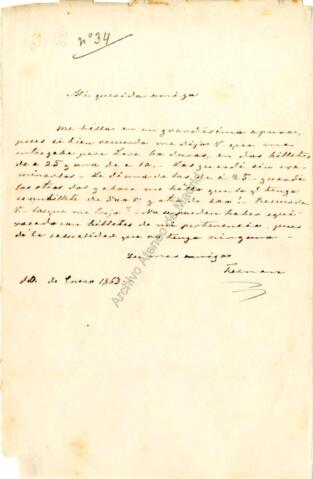 nº 34
Mi querida amiga
Me hallo en un grandísimo apuro,
pues si bien recuerdo me dijo V. que me
entregaba para Lara 60 duros, en dos billetes
de á 25 y uno de á 10. Los guardé sin exa-
minarlos. Le dí uno de los de á 25, guardé
los otros dos y ahora me hallo que lo qe. tengo
es un billete de 500 rs y otro de 200! Recuerda
V. los que me trajo? No se pueden haber equi-
vocado con billetes de mi pertenencia, pues
dá la casualidad que no tengo ninguno.
Su amigo
Fernan
10 de Enero 1863
Archivo Alfonso